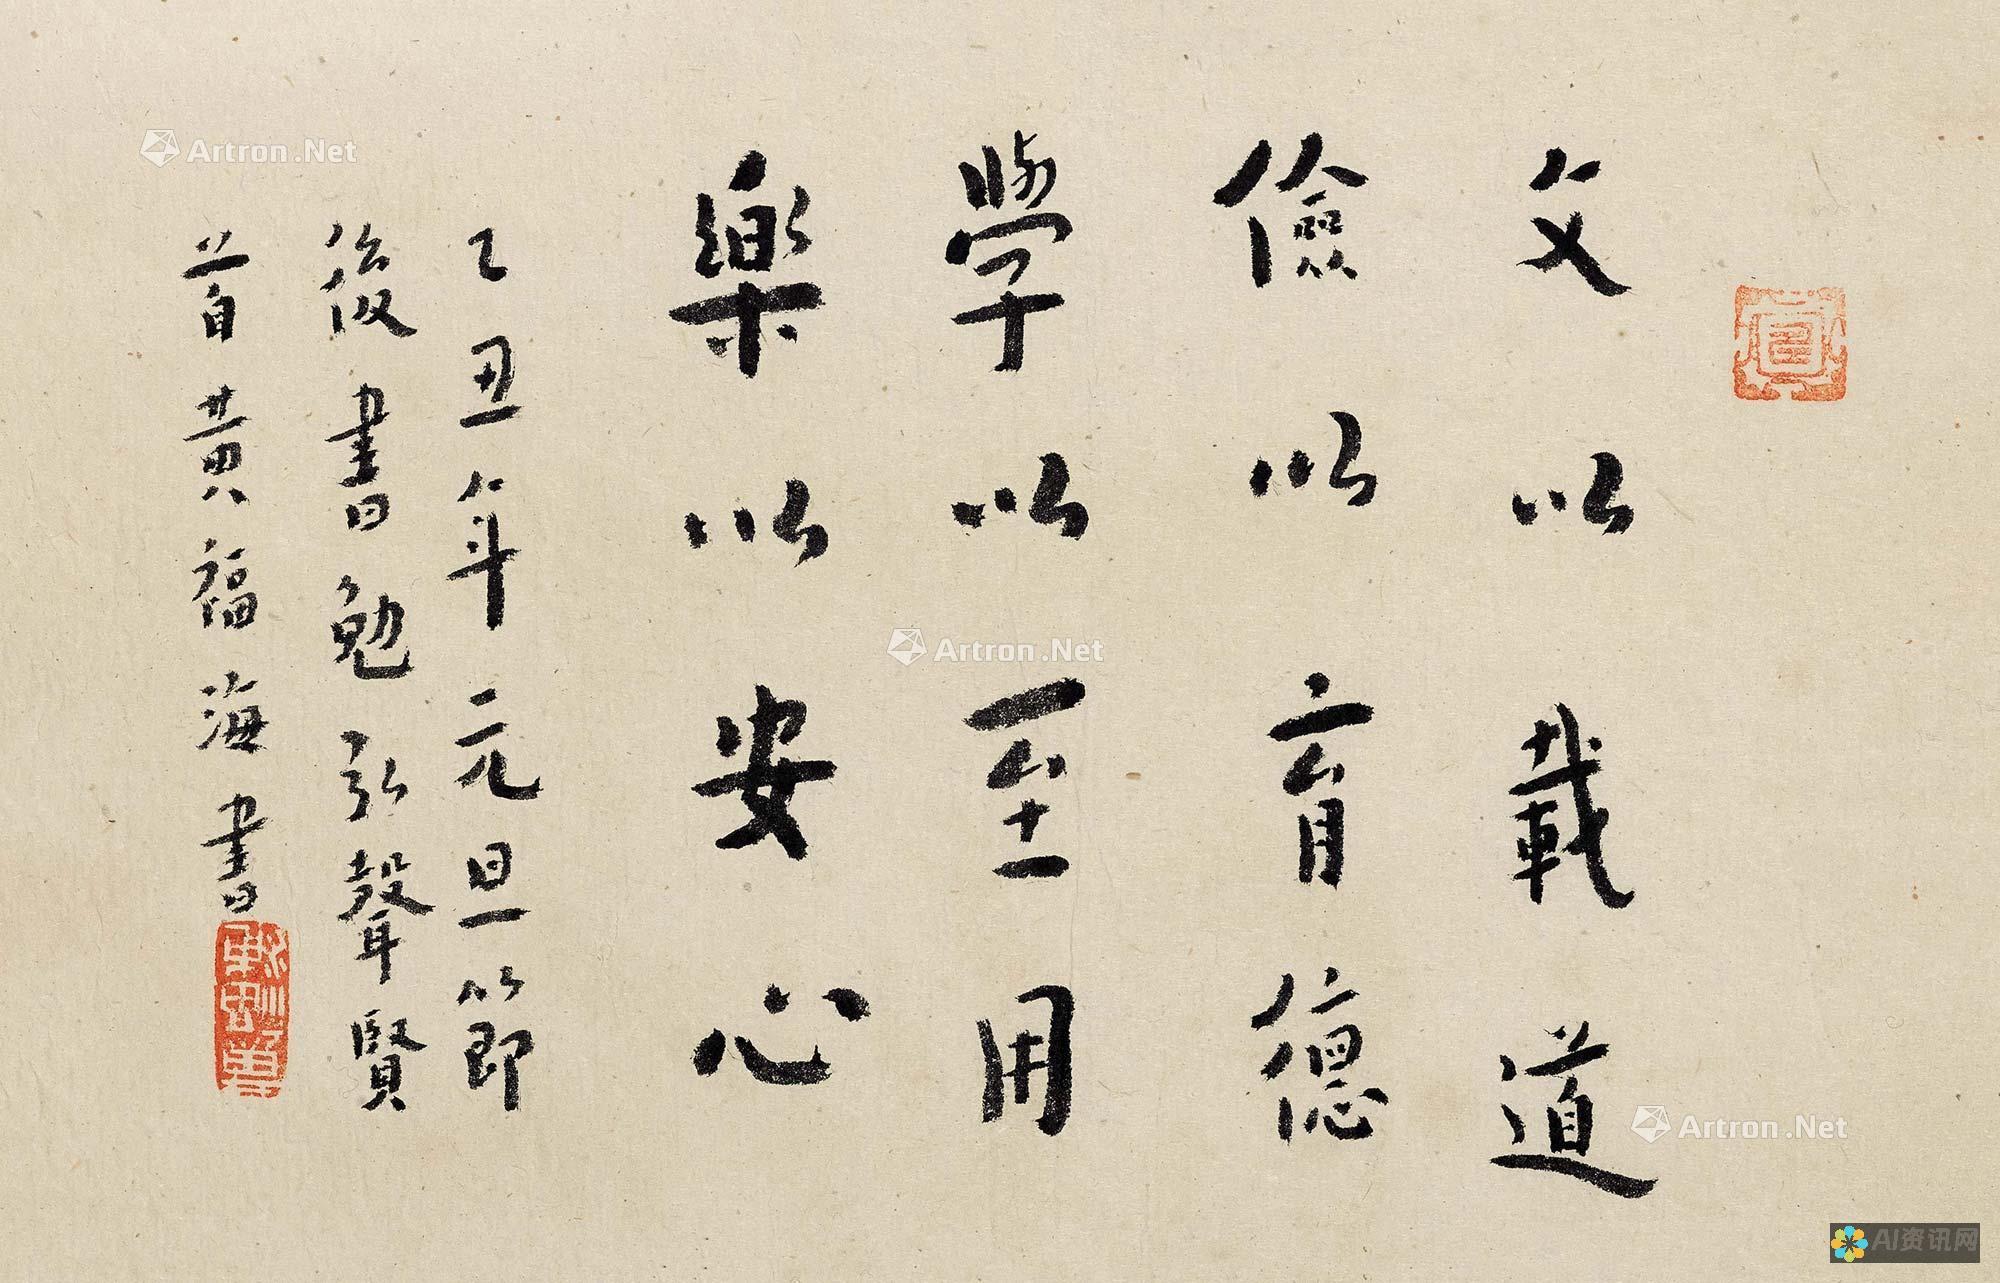 文以載道
儉以育德
學以至用
樂以安心
乙丑年元旦節
後書勉弘聲賢
首黄福海書
Artron.Net
Artron.Net
Artron.Net
AI资讯网